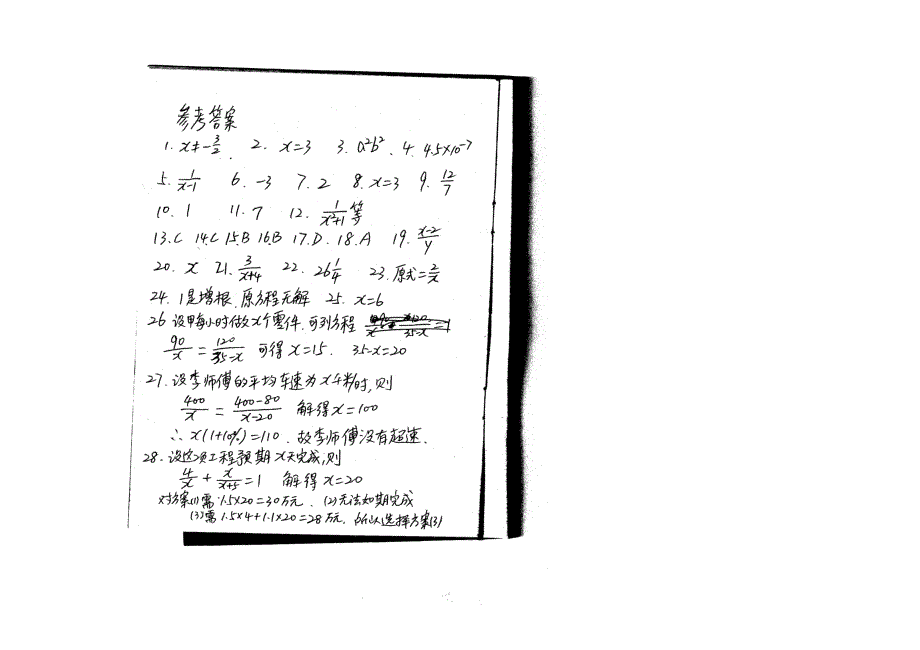 参考答案
1. x≠-3/2. 2. x=3 3. a²b². 4. 4.5×10⁻⁷
5. 1/(x-1) 6. -3 7. 2 8. x=3 9. 12/7
10. 1 11. 7 12. 1/(x²+1)等
13.C 14.C 15.B 16.B 17.D. 18.A 19. (x-2)/y
20. x 21. 3/(x+4) 22. 26 1/4 23. 原式=2/x
24. 1是增根,原方程无解 25. x=6
26 设甲每小时做x个零件,可列方程
90/x = 120/(35-x) 可得x=15. 35-x=20
27. 设李师傅的平均车速为x千米/时,则
400/x = (400-80)/(x-20) 解得x=100
∴ x(1+10%)=110. 故李师傅没有超速.
28. 设这项工程预期x天完成,则
4/x + x/(x+5) = 1 解得x=20
对方案(1)需1.5×20=30万元. (2)无法如期完成
(3)需1.5×4+1.1×20=28万元. 所以选择方案(3)